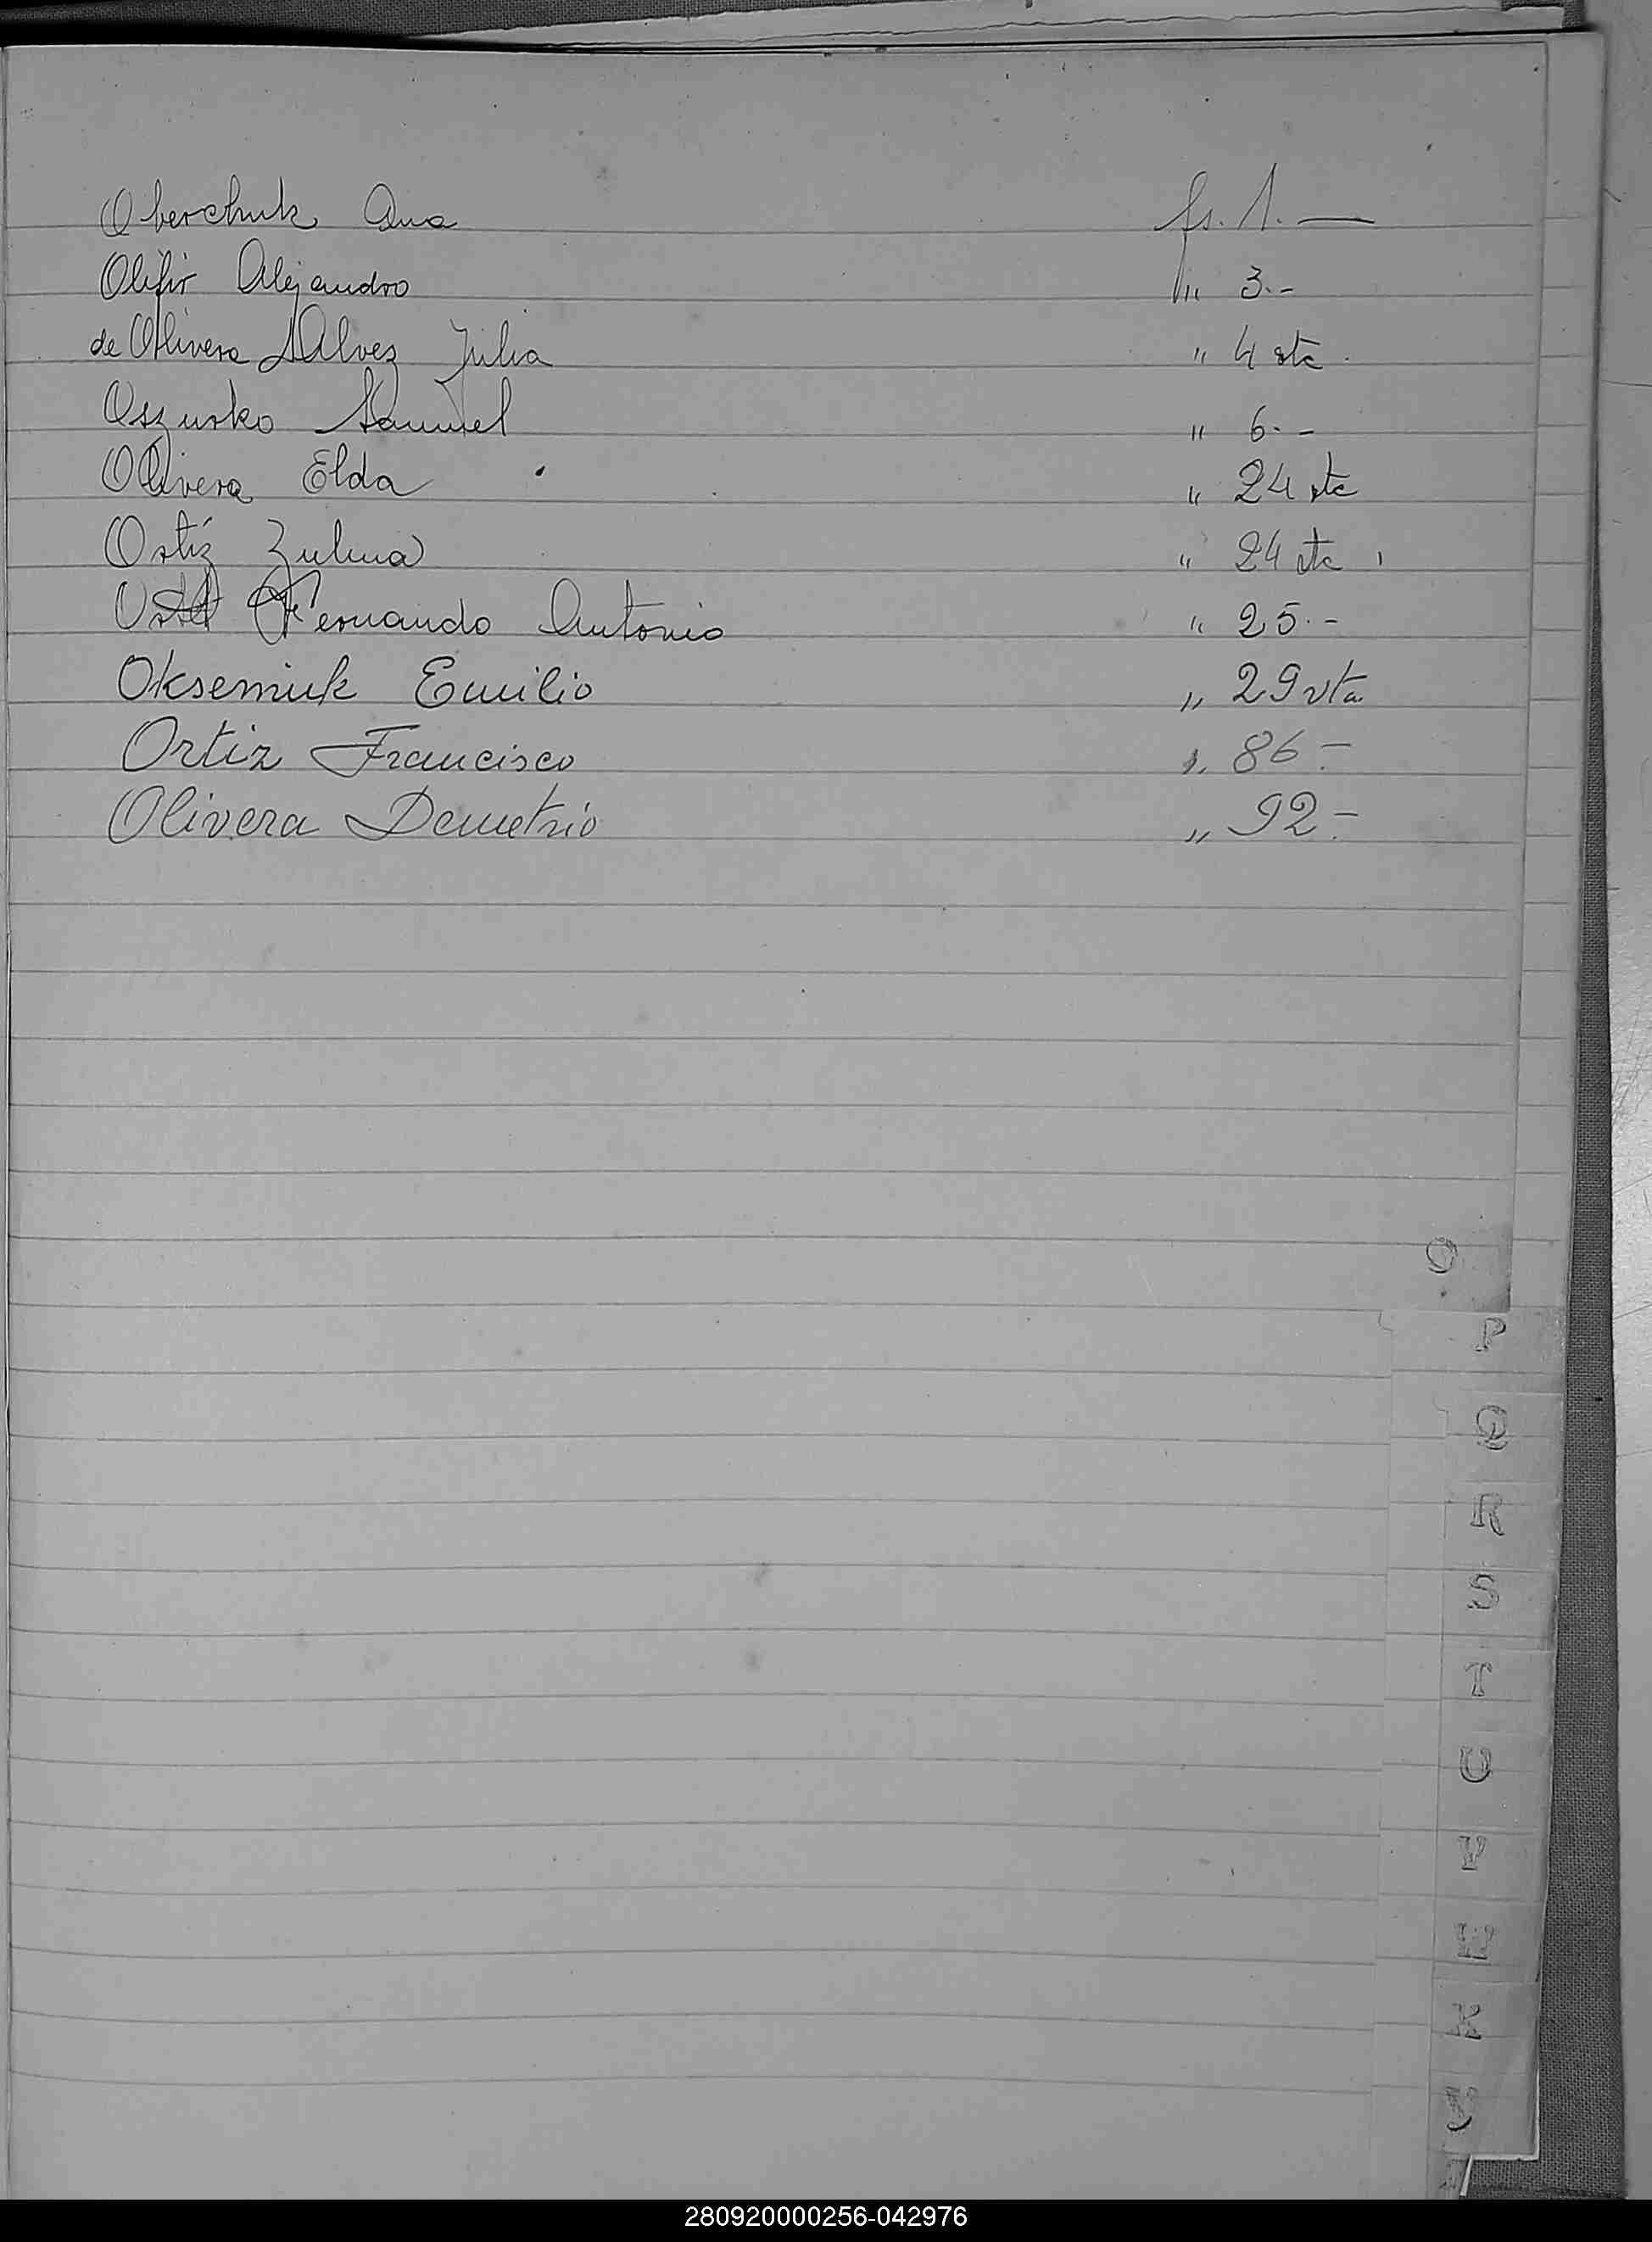 Oberchuk Ana fs. 1. —
Olifir Alejandro " 3.-
de Olivera Alvez Julia " 4 vta.
Oszurko Samuel " 6.-
Olivera Elda " 24 vta
Ortíz Zulma " 24 vta
Fernando Antonio " 25.-
Oksemiuk Emilio " 29 vta
Ortiz Francisco " 86.-
Olivera Demetrio " 92.-
O
P
Q
R
S
T
U
V
W
X
Y
280920000256-042976